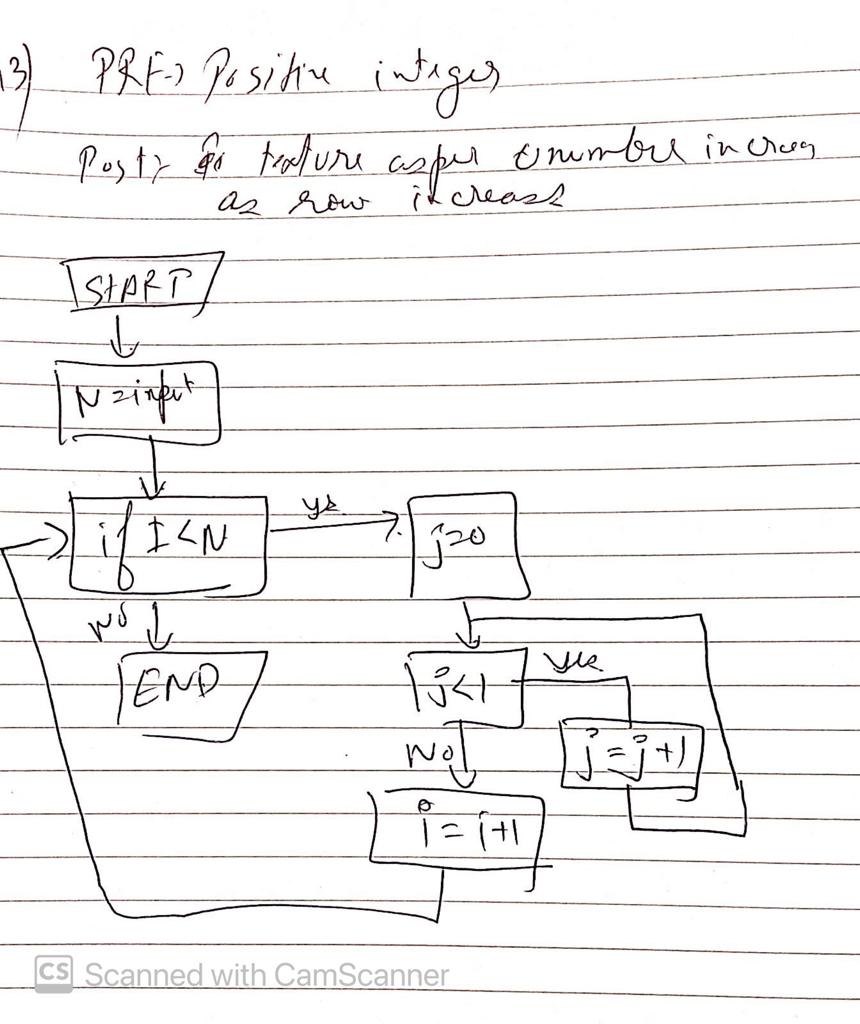 13)
PRE→ Positive integer
Post→ texture as per number increas
as row increase
START
N = input
if I < N
yes
j=0
No
END
j<1
yes
No
j = j + 1
i = i+1
CS Scanned with CamScanner